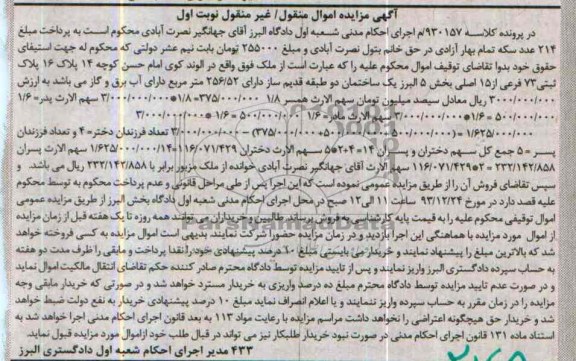 آگهی مزایده اموال منقول/ غیر منقول نوبت اول
در پرونده کلاسه ۹۳۰۱۵۷/م اجرای احکام مدنی شعبه اول دادگاه البرز آقای جهانگیر نصرت آبادی محکوم است به پرداخت مبلغ
۲۱۴ عدد سکه تمام بهار آزادی در حق خانم بتول نصرت آبادی و مبلغ ۲۵۵۰۰۰ تومان بابت نیم عشر دولتی که محکوم له جهت استیفای
حقوق خود بدوا تقاضای توقیف اموال محکوم علیه را که عبارت است از ملک فوق واقع در الوند کوی امام حسن کوچه ۱۴ پلاک ۱۶ پلاک
ثبتی ۷۳ فرعی از ۱۵ اصلی بخش ۵ البرز یک ساختمان دو طبقه قدیم ساز دارای ۲۵۶/۵۲ متر مربع دارای آب برق و گاز می باشد به ارزش
۳/۰۰۰/۰۰۰/۰۰۰ ریال معادل سیصد میلیون تومان سهم الارث همسر ۱/۸ ۳۷۵/۰۰۰/۰۰۰=۱/۸*۳/۰۰۰/۰۰۰/۰۰۰ سهم الارث پدر= ۱/۶
۵۰۰/۰۰۰/۰۰۰ = ۱/۶*۳/۰۰۰/۰۰۰/۰۰۰ سهم الارث مادر= ۱/۶ ۵۰۰/۰۰۰/۰۰۰ = ۱/۶ * ۳/۰۰۰/۰۰۰/۰۰۰
۱/۶۲۵/۰۰۰/۰۰۰ =(۳۷۵/۰۰۰/۰۰۰+۵۰۰/۰۰۰/۰۰۰+۵۰۰/۰۰۰/۰۰۰) -۳/۰۰۰/۰۰۰/۰۰۰ تعداد فرزندان دختر= ۴ و تعداد فرزندان
پسر = ۵ جمع کل سهم دختران و پسران ۱۴=۴+۲*۵ سهم الارث دختران ۱۱۶/۰۷۱/۴۲۹=۱/۶۲۵/۰۰۰/۰۰۰/۱۴ سهم الارث پسران
۲۳۲/۱۴۲/۸۵۸ = ۲*۱۱۶/۰۷۱/۴۲۹ سهم الارث آقای جهانگیر نصرت آبادی خوانده از ملک مزبور برابر با ۲۳۲/۱۴۲/۸۵۸ ریال می باشد. و
سپس تقاضای فروش آن را از طریق مزایده عمومی نموده است که این اجرا پس از طی مراحل قانونی و عدم پرداخت محکوم به توسط محکوم
علیه قصد دارد در مورخ ۹۳/۱۲/۲۴ ساعت ۱۱ الی ۱۲ صبح در محل اجرای احکام مدنی شعبه اول دادگاه بخش البرز از طریق مزایده عمومی
اموال توقیفی محکوم علیه را به قیمت پایه کارشناسی به فروش برساند. طالبین و خریداران می توانند همه روزه تا یک هفته قبل از زمان مزایده
از اموال مورد مزایده با هماهنگی این اجرا بازدید و در زمان مزایده حضور/ شرکت نمایند، بدیهی است اموال مزایده به کسی فروخته خواهد
شد که بالاترین مبلغ را پیشنهاد نمایند و خریدار می بایستی مبلغ ۱۰ درصد پیشنهادی خود را نقدا پرداخت و مابقی را ظرف مدت دو هفته
به حساب سپرده دادگستری البرز واریز نمایند و پس از تایید مزایده توسط دادگاه محترم صادر کننده حکم تقاضای انتقال مالکیت اموال نماید
و در صورت عدم تایید مزایده توسط دادگاه محترم مبلغ ده درصد واریزی به خریدار مسترد خواهد شد و در صورتی که خریدار مابقی وجه
مزایده را در زمان مقرر به حساب سپرده واریز ننمایند و یا اعلام انصراف نماید مبلغ ۱۰ درصد پیشنهادی خریدار به نفع دولت ضبط خواهد
شد و خریدار حق هیچگونه اعتراضی را نخواهد داشت مراسم مزایده با رعایت مواد ۱۱۳ به بعد قانون اجرای احکام مدنی اجرا خواهد شد به
استناد ماده ۱۳۱ قانون اجرای احکام مدنی در صورت نبود خریدار طلبکار نیز می تواند در قبال طلب خود از اموال مورد مزایده قبول نماید.
۴۳۳ مدیر اجرای احکام شعبه اول دادگستری البرز